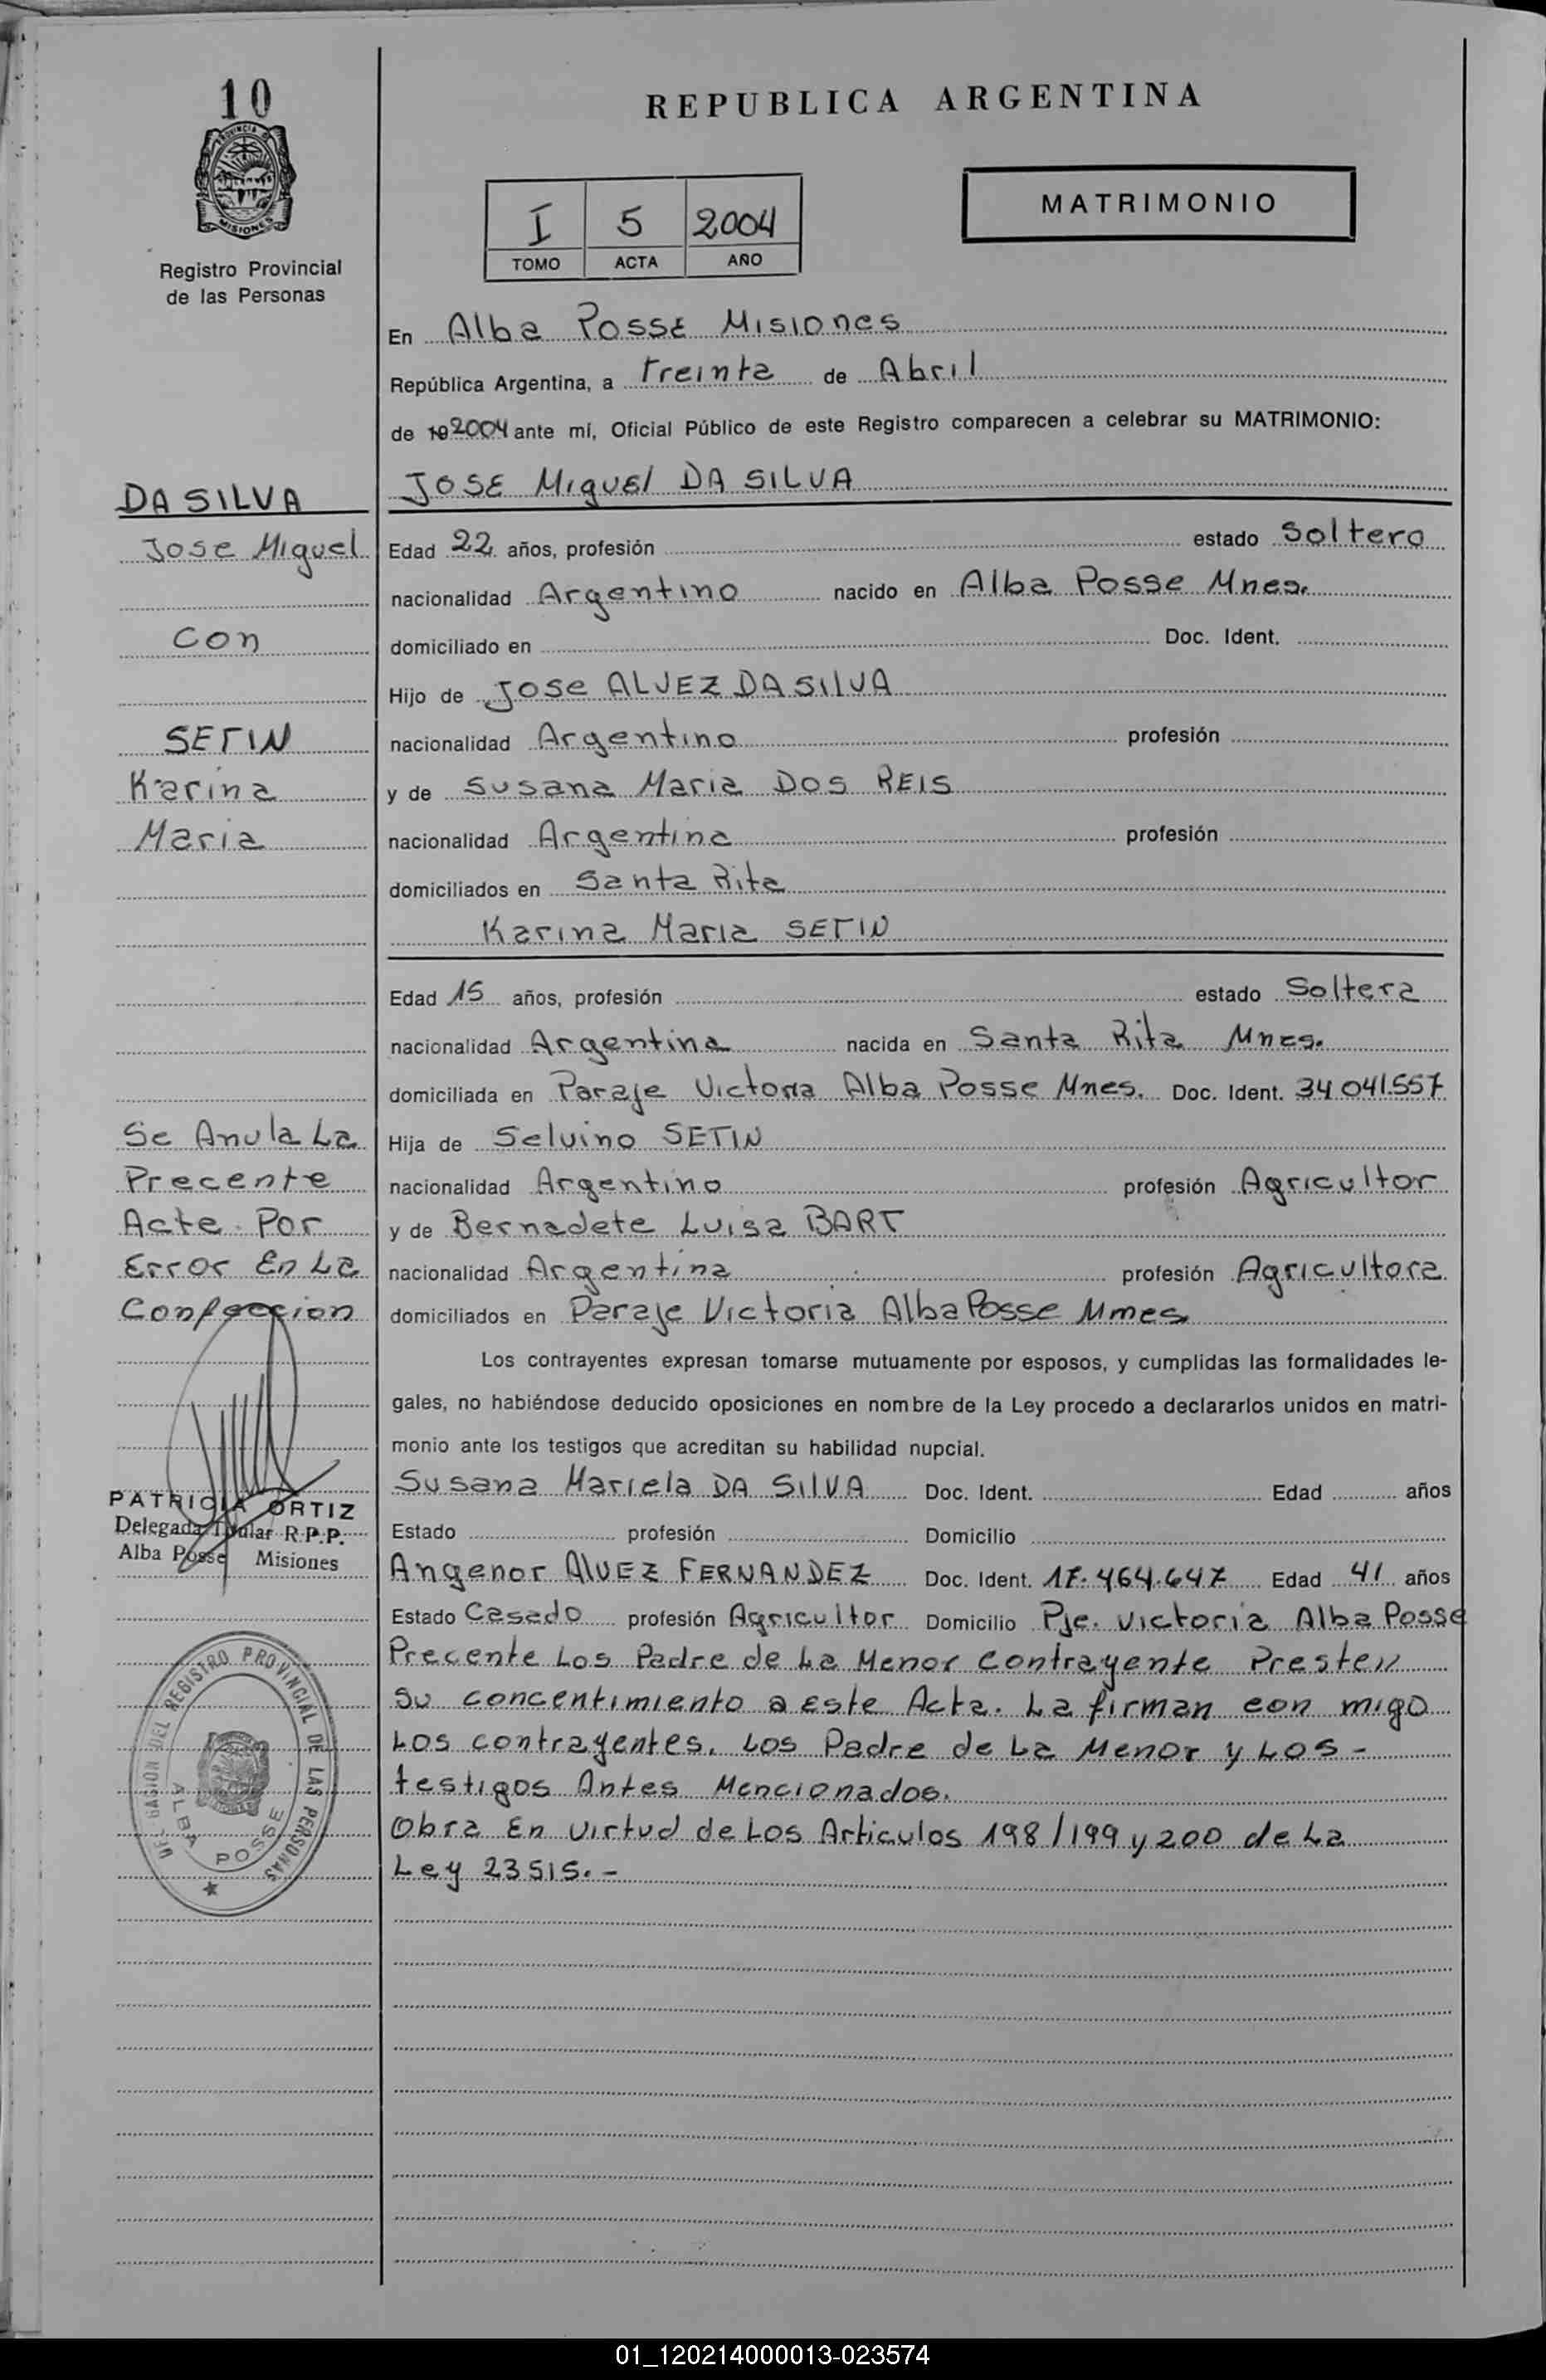 10
PROVINCIA DE
MISIONES
Registro Provincial
de las Personas
REPUBLICA ARGENTINA
I 5 2004
TOMO ACTA AÑO
MATRIMONIO
En Alba Posse Misiones
República Argentina, a Treinta de Abril
de 19 2004 ante mí, Oficial Público de este Registro comparecen a celebrar su MATRIMONIO:
JOSE Miguel DA SILVA
DA SILVA
Jose Miguel
con
SETIN
Karina
Maria
Edad 22 años, profesión estado Soltero
nacionalidad Argentino nacido en Alba Posse Mnes.
domiciliado en Doc. Ident.
Hijo de Jose ALVEZ DA SIlVA
nacionalidad Argentino profesión
y de Susana Maria DOS REIS
nacionalidad Argentina profesión
domiciliados en Santa Rita
Karina Maria SETIN
Edad 15 años, profesión estado Soltera
nacionalidad Argentina nacida en Santa Rita Mnes.
domiciliada en Paraje Victoria Alba Posse Mnes. Doc. Ident. 34 041.557
Hija de Selvino SETIN
nacionalidad Argentino profesión Agricultor
y de Bernadete Luisa BART
nacionalidad Argentina profesión Agricultora
domiciliados en Paraje Victoria Alba Posse Mmes
Se Anula La
Precente
Acta Por
Error En La
Confeccion
PATRICIA ORTIZ
Delegada Titular R.P.P.
Alba Posse Misiones
Los contrayentes expresan tomarse mutuamente por esposos, y cumplidas las formalidades le-
gales, no habiéndose deducido oposiciones en nombre de la Ley procedo a declararlos unidos en matri-
monio ante los testigos que acreditan su habilidad nupcial.
Susana Mariela DA SIlVA Doc. Ident. Edad años
Estado profesión Domicilio
Angenor AlVEZ FERNANDEZ Doc. Ident. 17.464.647 Edad 41 años
Estado Casado profesión Agricultor Domicilio Pje. Victoria Alba Posse
Precente Los Padre de La Menor contrayente Presten
su concentimiento a este Acta. La firman con migo
Los contrayentes. Los Padre de La Menor y Los -
testigos Antes Mencionados.
Obra En virtud de Los Articulos 198/199 y 200 de La
Ley 23515.-
DELEGACION DEL REGISTRO PROVINCIAL DE LAS PERSONAS
ALBA POSSE
01_120214000013-023574